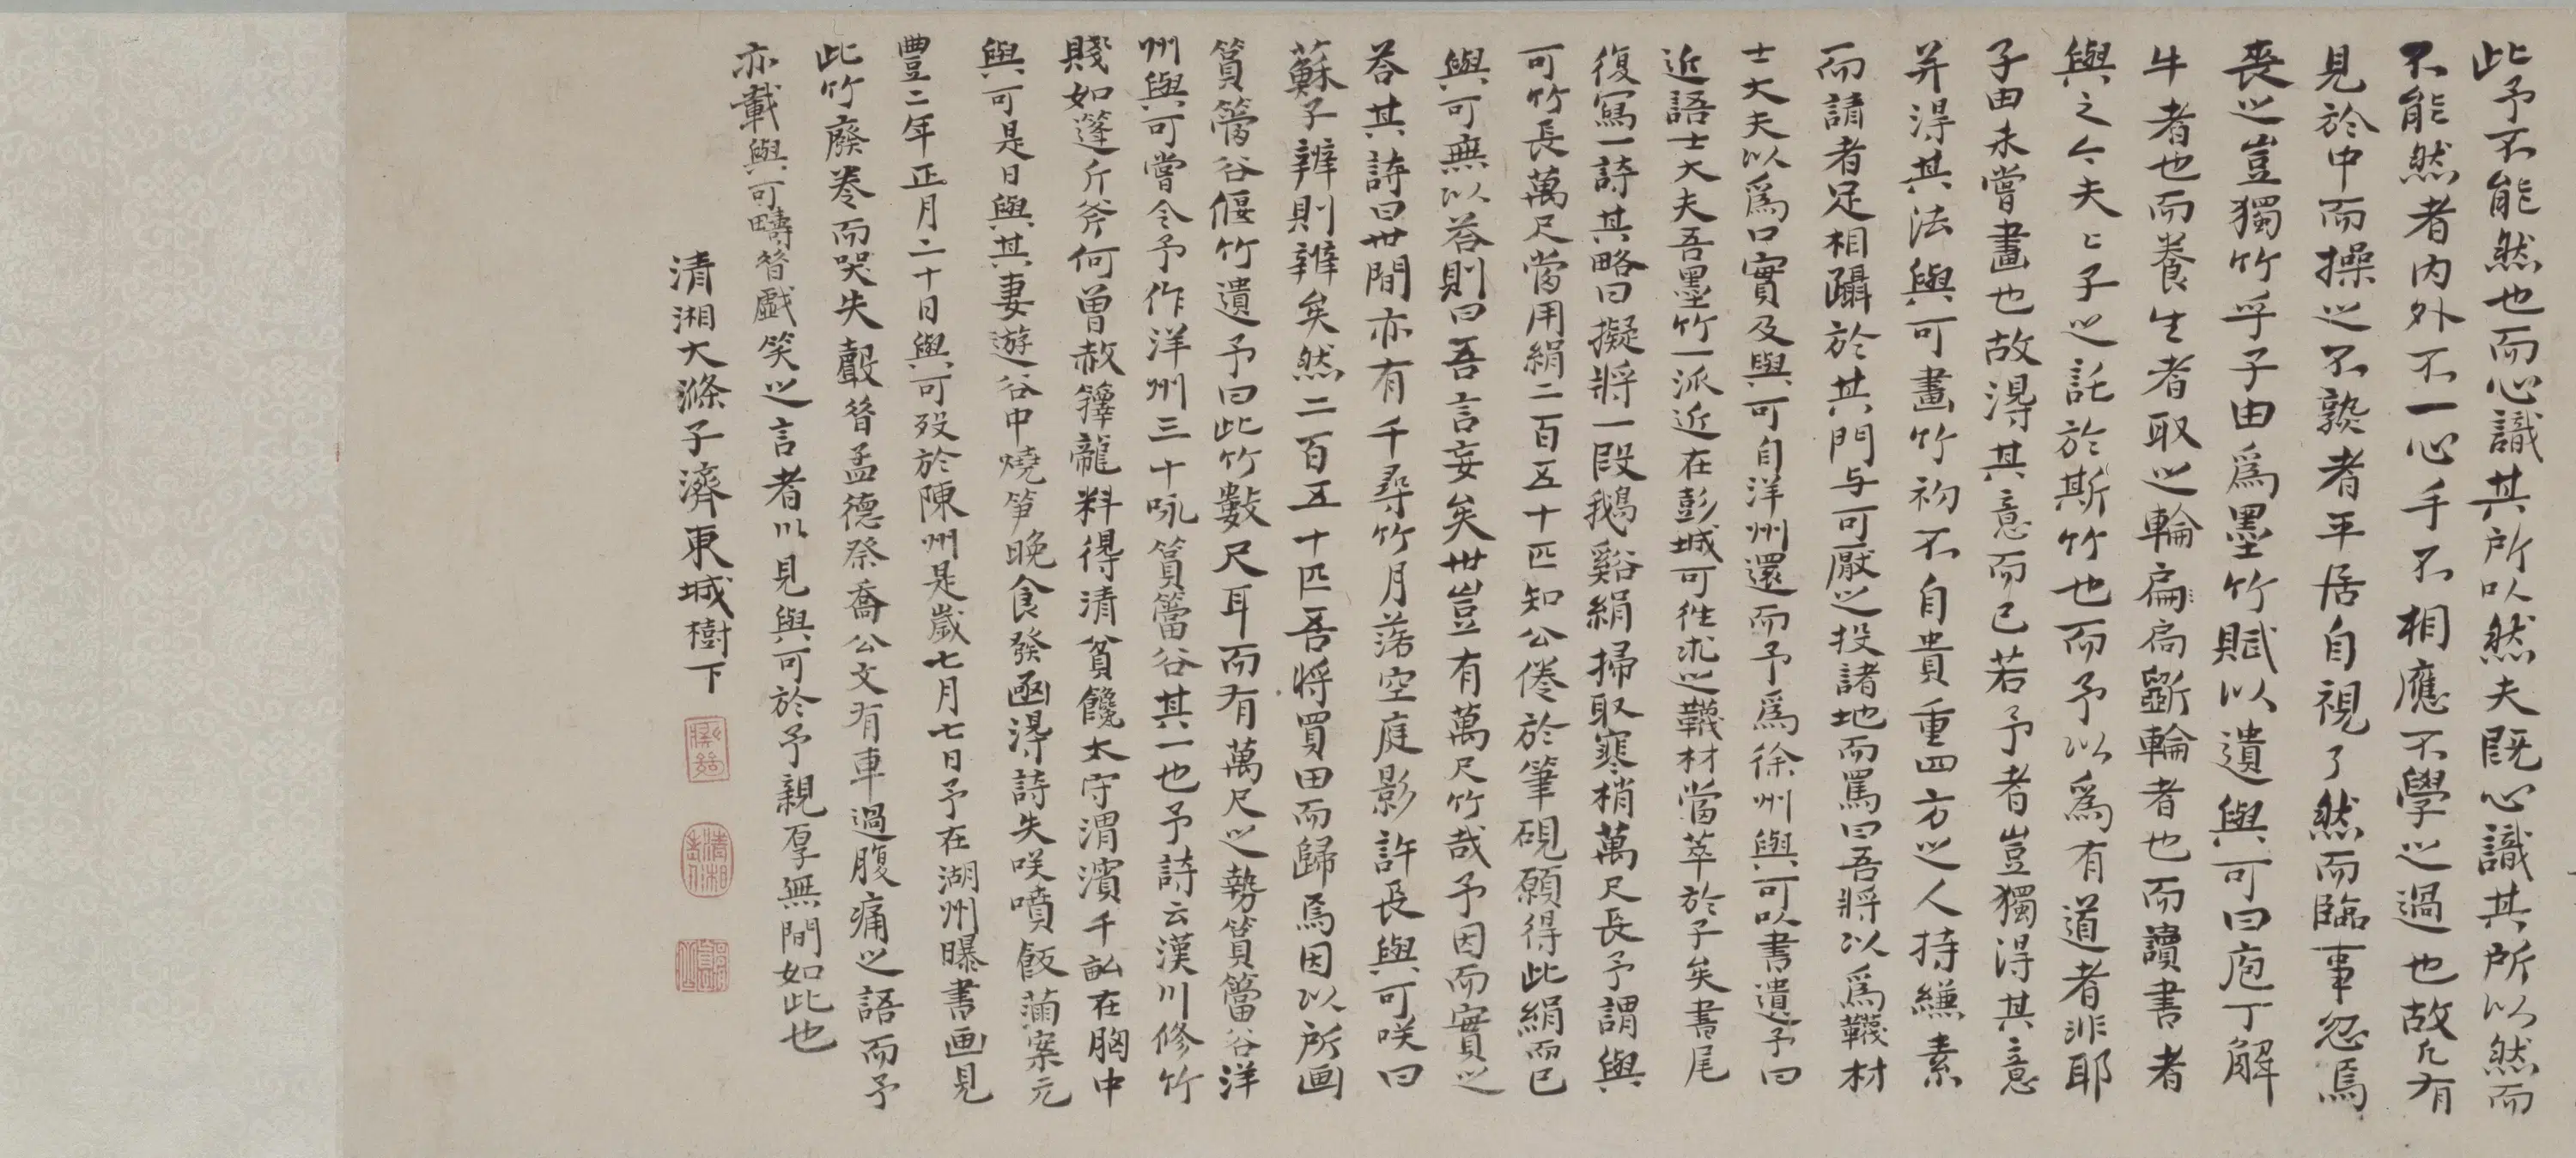 此予不能然也而心識其所以然夫既心識其所以然而
不能然者內外不一心手不相應不學之過也故凡有
見於中而操之不熟者平居自視了然而臨事忽焉
喪之豈獨竹乎子由爲墨竹賦以遺與可曰庖丁解
牛者也而養生者取之輪扁斲輪者也而讀書者
與之今夫夫子之託於斯竹也而予以爲有道者非耶
子由未嘗畫也故得其意而已若予者豈獨得其意
并得其法與可畫竹初不自貴重四方之人持縑素
而請者足相躡於其門与可厭之投諸地而罵曰吾將以爲韈材
士大夫以爲口實及與可自洋州還而予爲徐州與可以書遺予曰
近語士大夫吾墨竹一派近在彭城可往求之韈材當萃於子矣書尾
復寫一詩其略曰擬將一段鵝谿絹掃取寒梢萬尺長予謂與
可竹長萬尺當用絹二百五十匹知公倦於筆硯願得此絹而已
與可無以荅則曰吾言妄矣世豈有萬尺竹哉予因而實之
荅其詩曰世間亦有千尋竹月落空庭影許長與可咲曰
蘇子辨則辨矣然二百五十匹吾將買田而歸焉因以所画
篔簹谷偃竹遺予曰此竹數尺耳而有萬尺之勢篔簹谷洋
州與可嘗令予作洋州三十咏篔簹谷其一也予詩云漢川修竹
賤如蓬斤斧何曽赦籜龍料得清貧饞太守渭濱千畝在胸中
與可是日與其妻遊谷中燒笋晚食發函得詩失咲噴飯滿案元
豐二年正月二十日與可歿於陳州是歲七月七日予在湖州曝書画見
此竹廢卷而哭失聲昝孟德祭喬公文有車過腹痛之語而予
亦載與可疇昝戲笑之言者以見與可於予親厚無間如此也
清湘大滌子濟東城樹下
清湘